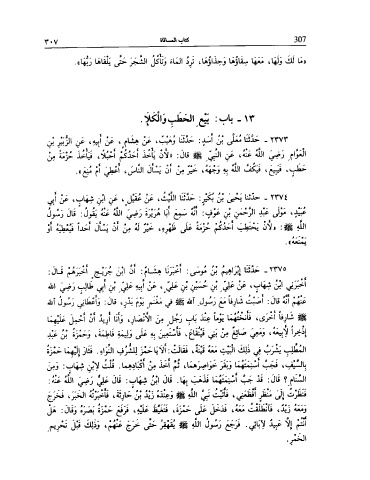 307 كتاب المساقاة ٣٠٧
«مَا لَكَ وَلَهَا، مَعَهَا سِقَاؤُهَا وَحِذَاؤُهَا، تَرِدُ المَاءَ وَتَأْكُلُ الشَّجَرَ حَتَّى يَلْقَاهَا رَبُّهَا».
١٣ - باب: بَيْعِ الحَطَبِ وَالْكَلَإِ.
٢٣٧٣ - حَدَّثَنَا مُعَلَّى بْنُ أَسَدٍ: حَدَّثَنَا وُهَيْبٌ، عَنْ هِشَامٍ، عَنْ أَبِيهِ، عَنِ الزُّبَيْرِ بْنِ
الْعَوَّامِ رَضِيَ اللَّهُ عَنْهُ، عَنِ النَّبِيِّ ﷺ قَالَ: «لَأَنْ يَأْخُذَ أَحَدُكُمْ أَحْبُلًا، فَيَأْخُذَ حُزْمَةً مِنْ
حَطَبٍ، فَيَبِيعَ، فَيَكُفَّ اللَّهُ بِهِ وَجْهَهُ، خَيْرٌ مِنْ أَنْ يَسْأَلَ النَّاسَ، أُعْطِيَ أَمْ مُنِعَ».
٢٣٧٤ - حدّثنا يَحْيَى بْنُ بُكَيْرٍ: حَدَّثَنَا اللَّيْثُ، عَنْ عُقَيْلٍ، عَنِ ابْنِ شِهَابٍ، عَنْ أَبِي
عُبَيْدٍ، مَوْلَى عَبْدِ الرَّحْمٰنِ بْنِ عَوْفٍ: أَنَّهُ سَمِعَ أَبَا هُرَيْرَةَ رَضِيَ اللَّهُ عَنْهُ يَقُولُ: قَالَ رَسُولُ
اللَّهِ ﷺ: «لَأَنْ يَحْتَطِبَ أَحَدُكُمْ حُزْمَةً عَلَى ظَهْرِهِ، خَيْرٌ لَهُ مِنْ أَنْ يَسْأَلَ أَحَداً فَيُعْطِيَهُ أَوْ
يَمْنَعَهُ».
٢٣٧٥ - حَدَّثَنَا إِبْرَاهِيمُ بْنُ مُوسَى: أَخْبَرَنَا هِشَامٌ: أَنَّ ابْنَ جُرَيْجٍ أَخْبَرَهُمْ قَالَ:
أَخْبَرَنِي ابْنُ شِهَابٍ، عَنْ عَلِيِّ بْنِ حُسَيْنِ بْنِ عَلِيٍّ، عَنْ أَبِيهِ حُسَيْنِ بْنِ عَلِيٍّ، عَنْ عَلِيِّ بْنِ أَبِي طَالِبٍ رَضِيَ الله
عَنْهُمْ أَنَّهُ قَالَ: أَصَبْتُ شَارِفاً مَعَ رَسُولِ اللهِ ﷺ فِي مَغْنَمٍ يَوْمَ بَدْرٍ، قَالَ: وَأَعْطَانِي رَسُولُ اللهِ
ﷺ شَارِفاً أُخْرَى، فَأَنَخْتُهُمَا يَوْماً عِنْدَ بَابِ رَجُلٍ مِنَ الأَنْصَارِ، وَأَنَا أُرِيدُ أَنْ أَحْمِلَ عَلَيْهِمَا
إِذْخِراً لِأَبِيعَهُ، وَمَعِيَ صَائِغٌ مِنْ بَنِي قَيْنُقَاعَ، فَأَسْتَعِينَ بِهِ عَلَى وَلِيمَةِ فَاطِمَةَ، وَحَمْزَةُ بْنُ عَبْدِ
المُطَّلِبِ يَشْرَبُ فِي ذٰلِكَ الْبَيْتِ مَعَهُ قَيْنَةٌ، فَقَالَتْ: أَلَا يَا حَمْزُ لِلشُّرُفِ النِّوَاءِ. فَثَارَ إِلَيْهِمَا حَمْزَةُ
بِالسَّيْفِ، فَجَبَّ أَسْنِمَتَهُمَا وَبَقَرَ خَوَاصِرَهُمَا، ثُمَّ أَخَذَ مِنْ أَكْبَادِهِمَا. قُلْتُ لِابْنِ شِهَابٍ: وَمِنَ
السَّنَامِ؟ قَالَ: قَدْ جَبَّ أَسْنِمَتَهُمَا فَذَهَبَ بِهَا. قَالَ ابْنُ شِهَابٍ: قَالَ عَلِيٌّ رَضِيَ اللَّهُ عَنْهُ:
فَنَظَرْتُ إِلَى مَنْظَرٍ أَفْظَعَنِي، فَأَتَيْتُ نَبِيَّ اللَّهِ ﷺ وَعِنْدَهُ زَيْدُ بْنُ حَارِثَةَ، فَأَخْبَرْتُهُ الخَبَرَ، فَخَرَجَ
وَمَعَهُ زَيْدٌ، فَانْطَلَقْتُ مَعَهُ، فَدَخَلَ عَلَى حَمْزَةَ، فَتَغَيَّظَ عَلَيْهِ، فَرَفَعَ حَمْزَةُ بَصَرَهُ وَقَالَ: هَلْ
أَنْتُمْ إِلَّا عَبِيدٌ لِآبَائِي. فَرَجَعَ رَسُولُ اللَّهِ ﷺ يُقَهْقِرُ حَتَّى خَرَجَ عَنْهُمْ، وَذٰلِكَ قَبْلَ تَحْرِيمِ
الخَمْرِ.